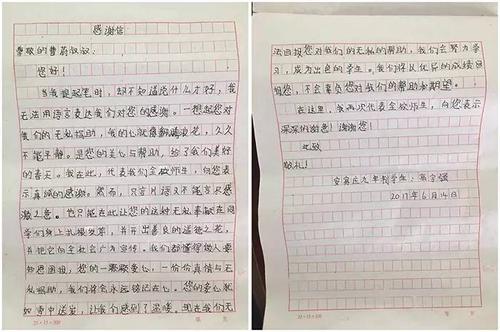 感谢信
尊敬的曹蔚叔叔:
您好!
当我提起笔时,却不知道说什么才好,我
无法用语言表达我们对您的感谢。一想起您对
我们的无私帮助,我的心就像翻腾浪花,久久
不能平静。是您的关心与帮助,给了我们美好
的春天。我在此,代表我们全校师生,向您表
示真诚的感谢。然而,只言片语又不能言尽感
激之意。也只能在此让您的这种无私奉献在同
学们身上扎根发芽,并开出善良的道德之花,
并把它向全社会广为宣传。我们都懂得做人要
知恩图报,您的一颗颗爱心,一份份真情与无
私帮助,我们将会永远铭记在心。您的爱心就
如雪中送炭,让我们感到了温暖。现在我们无
20×15=300
法回报您对我们的无私的帮助,我们会努力学
习,成为出良的学生。我们将以优异的成绩回报
您,不会辜负您对我们的帮助和期望。
在这里,我再次代表全校师生,向您表示
深深的谢意!谢谢您!
此致
敬礼!
九年制学生:
2017年6月14日
20×15=300